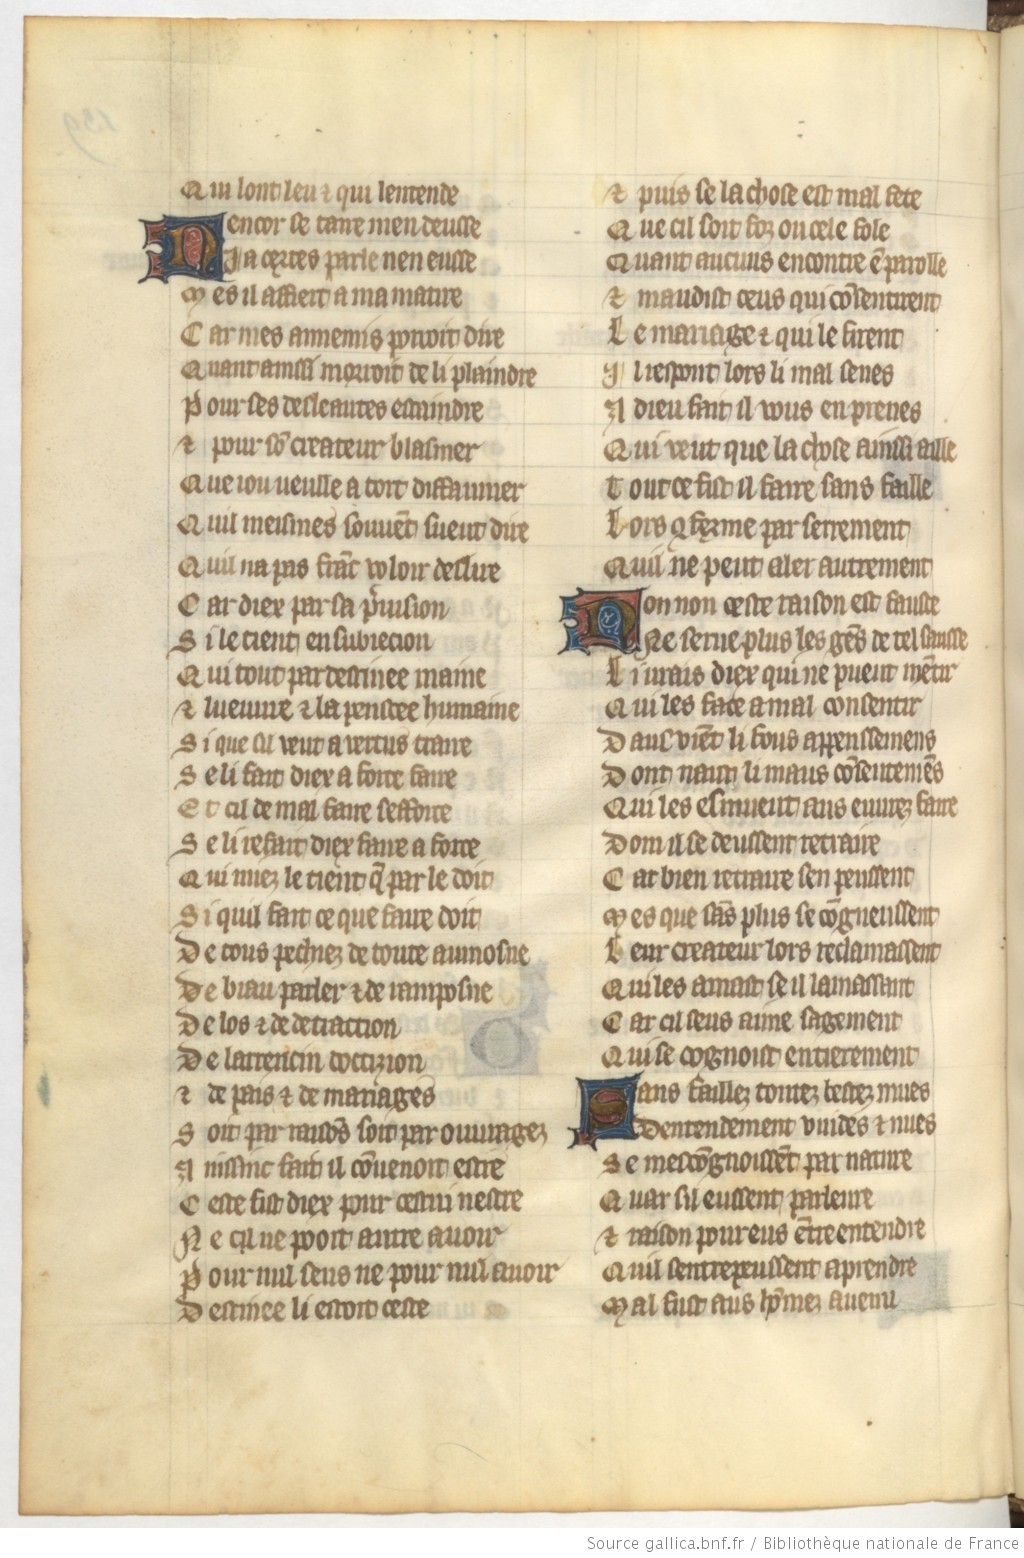 Qui lont leu ⁊ qui lentende
Nencor se taire men deusse
Ja certes parle nen eusse
Mes il affiert a ma matire
Car mes annemis porroit dire
Quant ainssi morroit de li plaindre
Pour ses desleautes estaindre
⁊ pour sō createur blasmer
Que iou veulle a tort diffammer
Quil meismes souuēt sueut dire
Quil na pas frāc voloir deslire
Car diex par sa p̄uision
Si le tient en subiection
Qui tout par destinee maine
⁊ lueuure ⁊ la pensee humaine
Si que sil veut a vertus traire
Se li fait diex a force faire
Et cil de mal faire sefforce
Se li refait diex faire a force
Qui miex le tient q̄ par le doit
Si quil fait ce que faire doit
De tous pechiez de toute aumosne
De biau parler ⁊ de ramposne
De los ⁊ de detraction
De larrencin doccizion
⁊ de pais ⁊ de mariages
Soit par raisōs soit par ouuragez
Ainssinc fait il cōuenoit estre
Ceste fist diex pour cestui nestre
Ne cil ne pooit autre auoir
Pour nul sens ne pour nul auoir
Destinee li estoit ceste
⁊ puis se la chose est mal fete
Que cil soit fox ou cele fole
Quant aucuns encontre ē parolle
⁊ maudist ceus qui cōsentirent
Le mariage ⁊ qui le firent
Il respont lors li mal senes
A dieu fait il vous en prenes
Qui veut que la chose ainssi aille
Tout ce fist il faire sans faille
Lors ɋferme par serrement
Quil ne peut aler autrement
Non non ceste raison est fausse
Ne serue plus les gēs de tel sausse
Li vrais diex qui ne pueut mētir
Qui les face a mal consentir
Daus viēt li fous appenssemens
Dont naist li maus cōsentemēs
Qui les esmuent aus euurez faire
Dom il se deussent retraire
Car bien retraire sen peussent
Mes que sās plus se cōgneussent
Leur createur lors reclamassent
Qui les amast se il lamassant
Car cil seus aime sagement
Qui se cognoist entierement
Sans faillez toutez bestez mues
Dentendement vuides ⁊ nues
Se mescōgnoissēt par nature
Quar sil eussent parleure
⁊ raison pour eus ētreentendre
Quil sentrepeussent aprendre
Mal fust aus hōmez auenu
Source gallica.bnf.fr / Bibliothèque nationale de France